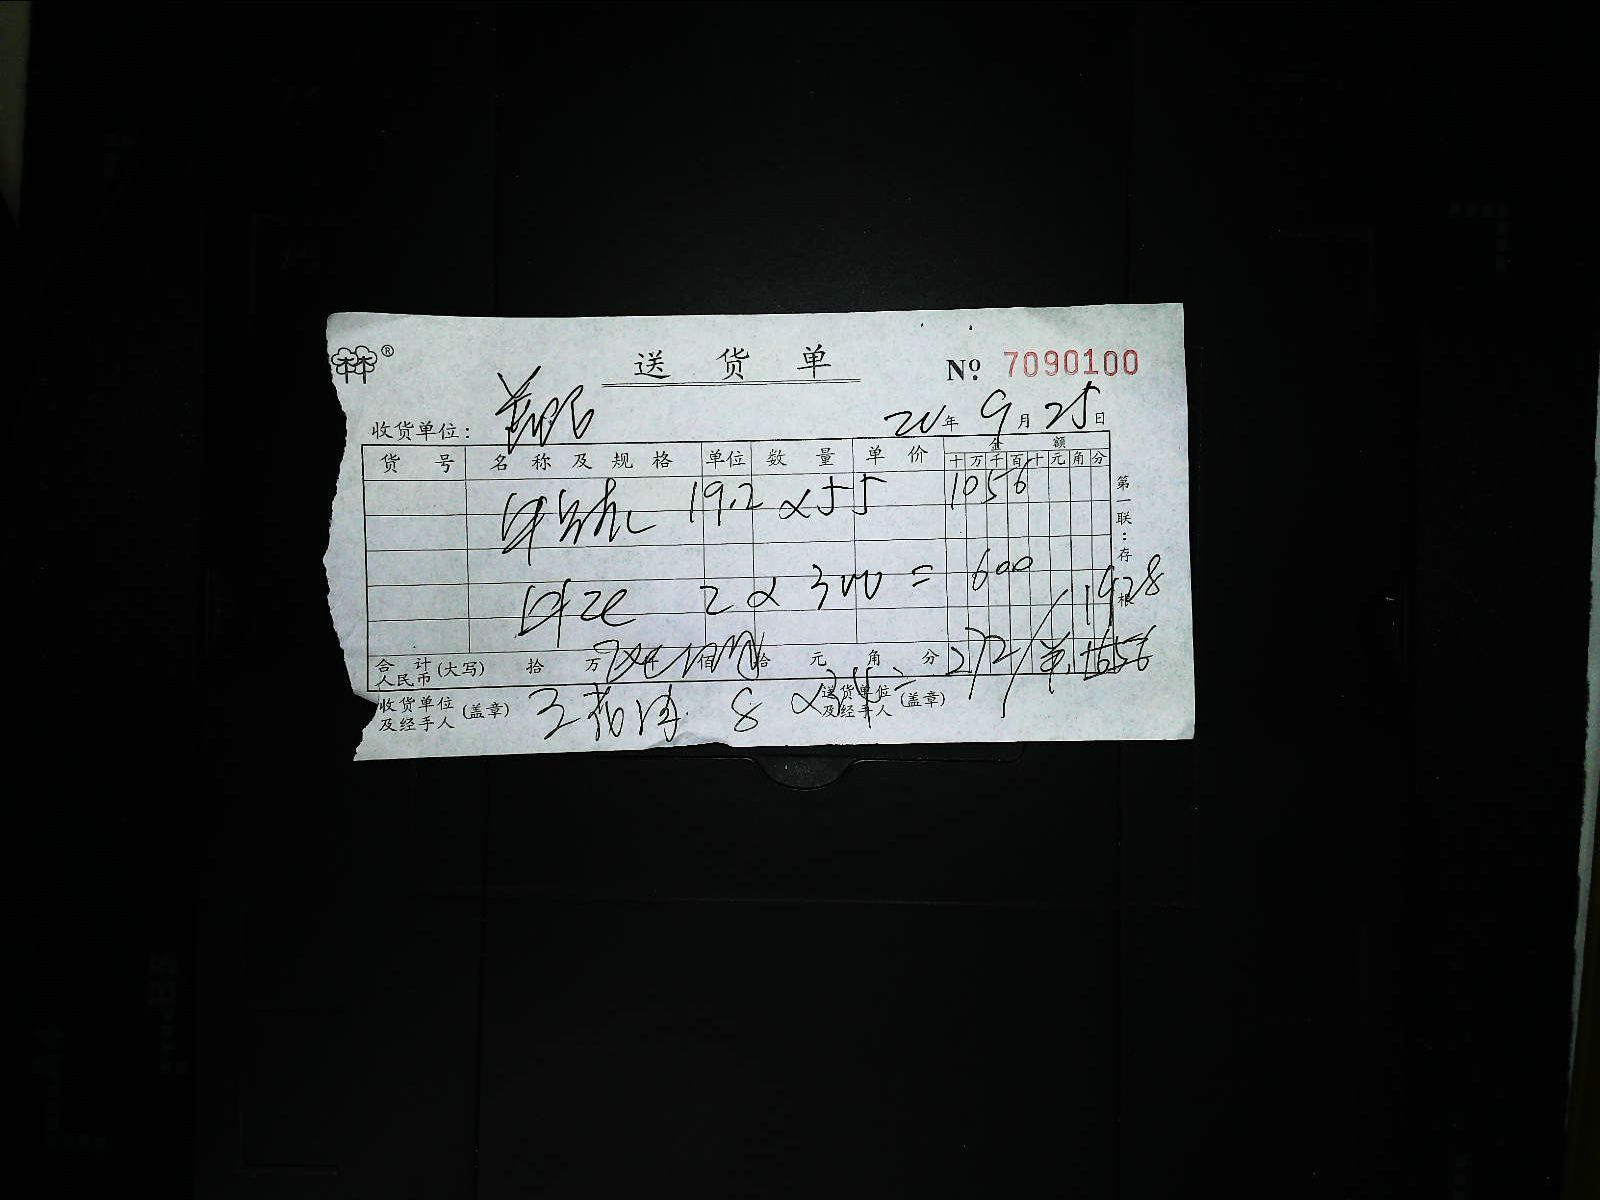 ®
送 货 单 Nº 7090100
收货单位: 年 9 月 25 日
货 号 名 称 及 规 格 单位 数 量 单 价 金 额
十 万 千 百 十 元 角 分
19.2 x55 1056
2 x 300 = 600
1928
合 计 人民币 (大写) 拾 万 仟 佰 拾 元 角 分 272 1656
收货单位及经手人 (盖章) 8 送货单位及经手人 (盖章)
第一联:存根